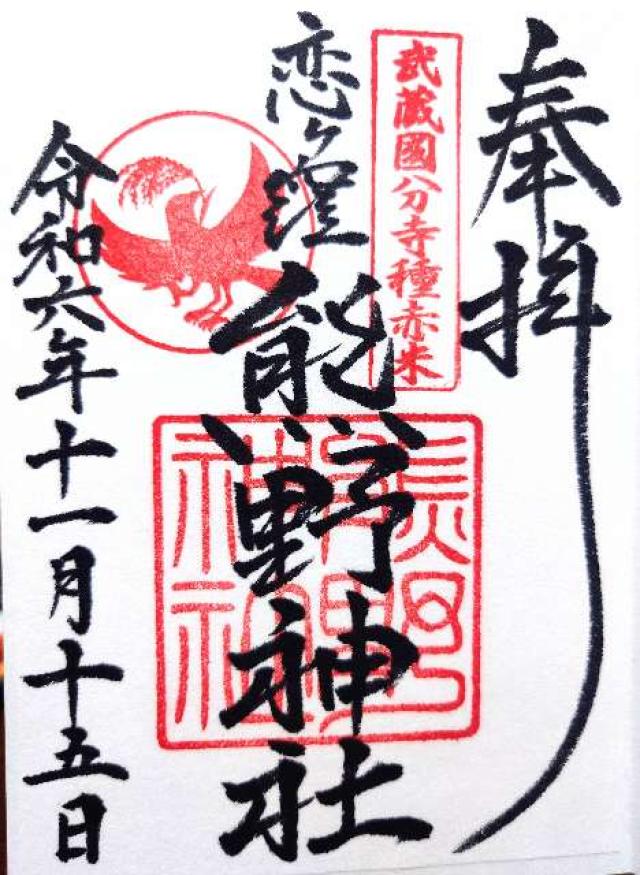 奉拝
武蔵國分寺種赤米
恋ヶ窪
熊野神社
令和六年十一月十五日